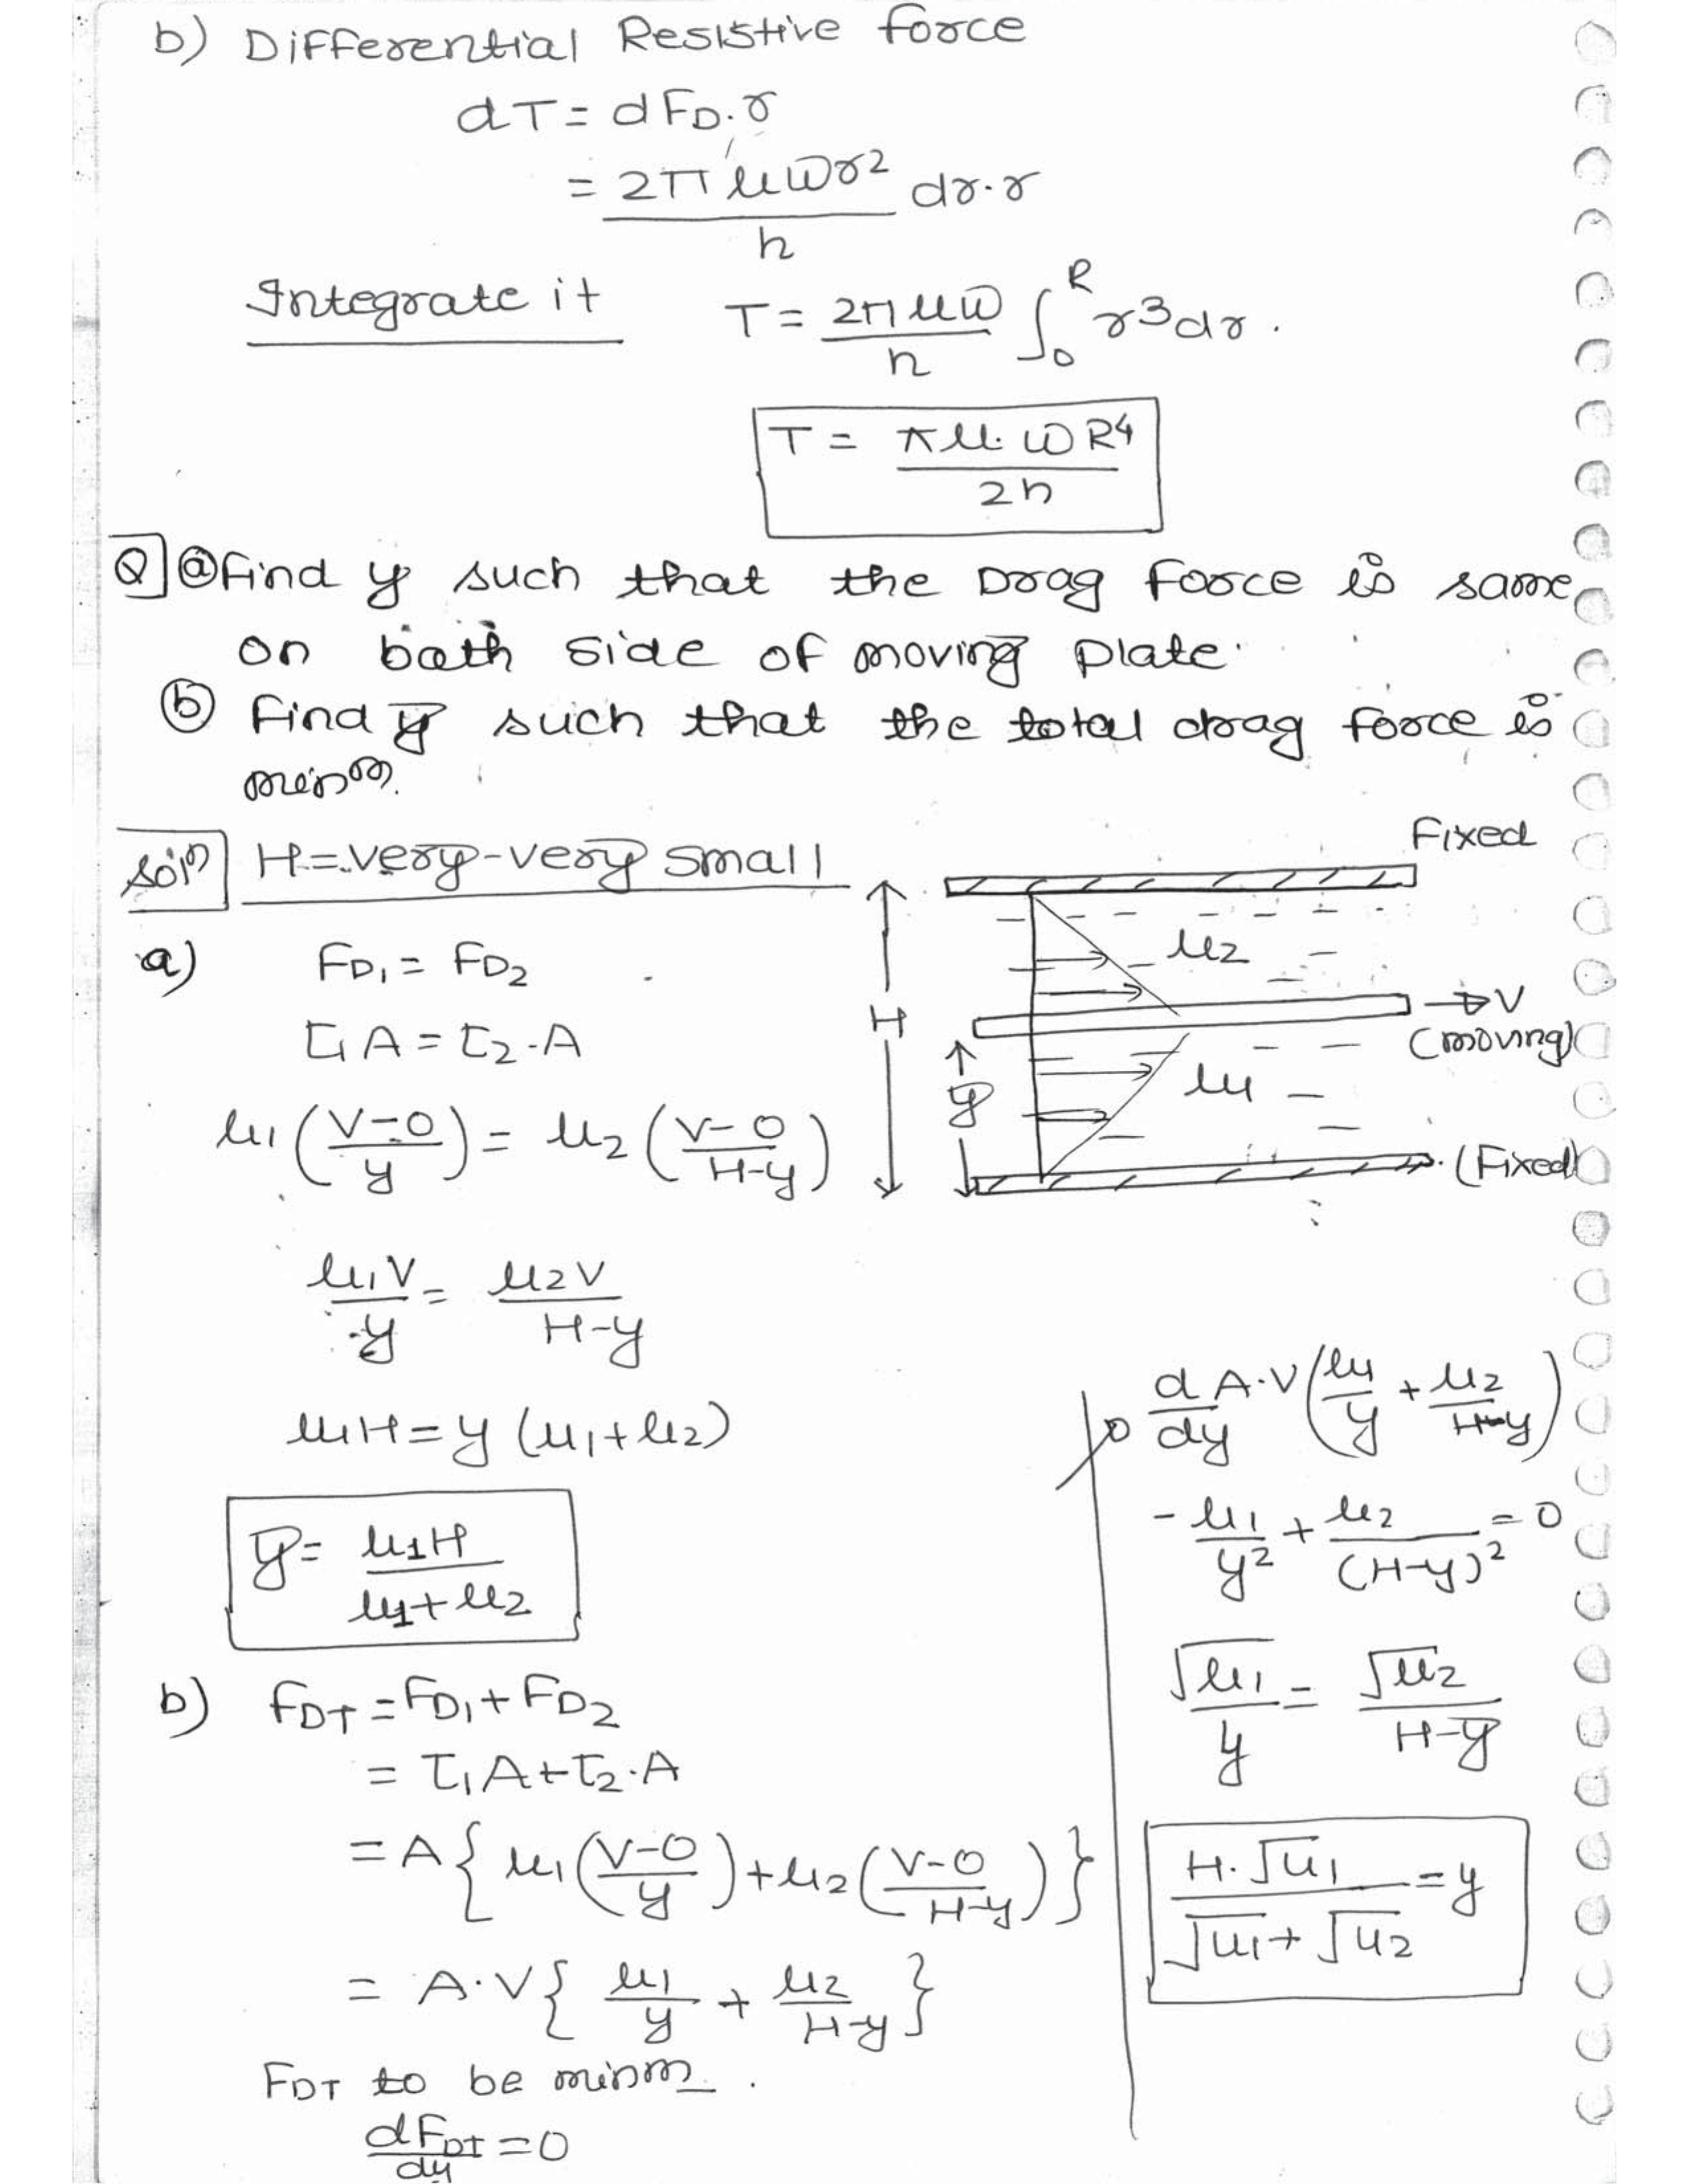 b) Differential Resistive force
dT = dF_D.r
= 2πμωr² / h dr.r
Integrate it T = 2πμω / h ∫₀ᴿ r³dr.
T = πμ.ωR⁴ / 2h
Q] ⓐ find y such that the Drag force is same
on both side of moving plate.
ⓑ find y such that the total drag force is
minm.
Solⁿ H = very-very small
Fixed
a) F_D₁ = F_D₂
μ₂
τ₁A = τ₂.A
H
V
(moving)
y
μ₁
μ₁((V-0)/y) = μ₂((V-0)/(H-y))
(Fixed)
μ₁V/y = μ₂V/(H-y)
μ₁H = y(μ₁+μ₂)
y = μ₁H / (μ₁+μ₂)
b) F_DT = F_D₁ + F_D₂
= τ₁A + τ₂.A
= A{μ₁((V-0)/y) + μ₂((V-0)/(H-y))}
= A.V{μ₁/y + μ₂/(H-y)}
F_DT to be minm.
dF_DT/dy = 0
d/dy A.V(μ₁/y + μ₂/(H-y))
-μ₁/y² + μ₂/(H-y)² = 0
√μ₁/y = √μ₂/(H-y)
H.√μ₁ / (√μ₁+√μ₂) = y